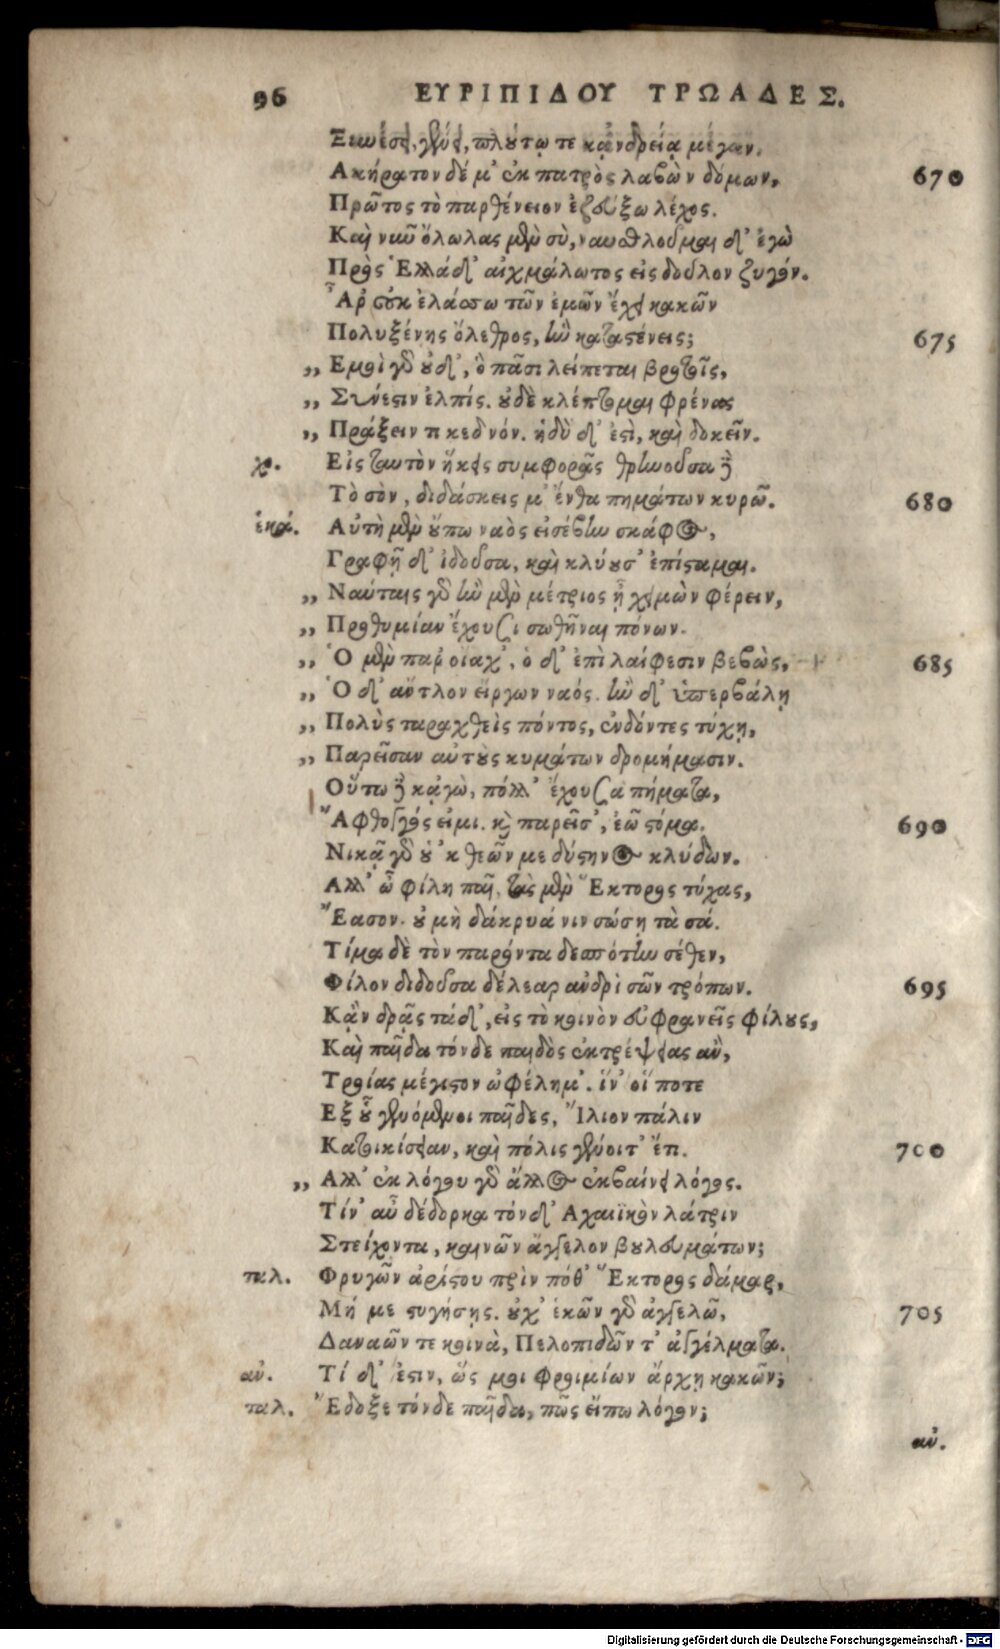 96 ΕΥΡΙΠΙΔΟΥ ΤΡΩΑΔΕΣ.
Ξυνέσει, γένει, πλούτῳ τε κᾀνδρείᾳ μέγαν.
Ακήρατον δέ μ' ἐκ πατρὸς λαβὼν δόμων, 670
Πρῶτος τὸ παρθένειον ἐζεύξω λέχος.
Καὶ νῦν ὄλωλας μὲν σὺ, ναυσθλοῦμαι δ' ἐγὼ
Πρὸς Ἑλλάδ' αἰχμάλωτος εἰς δοῦλον ζυγόν.
Ἆρ' οὐκ ἐλάσσω τῶν ἐμῶν ἔχει κακῶν
Πολυξένης ὄλεθρος, ἣν καταστένεις; 675
,, Εμοὶ γὰρ οὐδ', ὃ πᾶσι λείπεται βροτοῖς,
,, Σύνεστιν ἐλπίς. οὐδὲ κλέπτομαι φρένας
,, Πράξειν τι κεδνόν. ἡδὺ δ' ἐστὶ, καὶ δοκεῖν.
χο. Εἰς ταυτὸν ἥκεις συμφορᾶς θρηνοῦσα δὲ
Τὸ σὸν, διδάσκεις μ' ἔνθα πημάτων κυρῶ. 680
ἑκά. Αὐτὴ μὲν οὔπω ναὸς εἰσέβην σκάφος,
Γραφῇ δ' ἰδοῦσα, καὶ κλύουσ' ἐπίσταμαι.
,, Ναύταις γὰρ ἢν μὲν μέτριος ᾖ χειμὼν φέρειν,
,, Προθυμίαν ἔχουσι σωθῆναι πόνων.
,, Ὁ μὲν παρ' οἴαχ', ὁ δ' ἐπὶ λαίφεσιν βεβὼς, 685
,, Ὁ δ' ἄντλον εἴργων ναός. ἢν δ' ὑπερβάλῃ
,, Πολὺς ταραχθεὶς πόντος, ἐνδόντες τύχῃ,
,, Παρεῖσαν αὑτοὺς κυμάτων δρομήμασιν.
Οὕτω δὲ κᾀγὼ, πόλλ' ἔχουσα πήματα,
Ἄφθογγός εἰμι. καὶ παρεῖσ', ἐῶ στόμα. 690
Νικᾷ γὰρ οὑ'κ θεῶν με δύστηνος κλύδων.
Αλλ' ὦ φίλη παῖ, τὰς μὲν Ἕκτορος τύχας,
Ἔασον. οὐ μὴ δάκρυά νιν σώσῃ τὰ σά.
Τίμα δὲ τὸν παρόντα δεσπότην σέθεν,
Φίλον διδοῦσα δέλεαρ ἀνδρὶ σῶν τρόπων. 695
Κᾂν δρᾷς τάδ', εἰς τὸ κοινὸν εὐφρανεῖς φίλους,
Καὶ παῖδα τόνδε παιδὸς ἐκτρέψειας ἂν,
Τροίας μέγιστον ὠφέλημ'. ἵν' οἵ ποτε
Εξ οὗ γενόμενοι παῖδες, Ἴλιον πάλιν
Κατοικίσειαν, καὶ πόλις γένοιτ' ἔτι. 700
,, Αλλ' ἐκ λόγου γὰρ ἄλλος ἐκβαίνει λόγος.
Τίν' αὖ δέδορκα τόνδ' Αχαιϊκὸν λάτριν
Στείχοντα, καινῶν ἄγγελον βουλευμάτων;
ταλ. Φρυγῶν ἀρίστου πρὶν πόθ' Ἕκτορος δάμαρ,
Μή με στυγήσῃς. οὐχ' ἑκὼν γὰρ ἀγγελῶ, 705
Δαναῶν τε κοινὰ, Πελοπιδῶν τ' ἀγγέλματα.
αν. Τί δ' ἔστιν, ὥς μοι φροιμίων ἄρχῃ κακῶν;
ταλ. Ἔδοξε τόνδε παῖδα, πῶς εἴπω λόγον;
αν.
Digitalisierung gefördert durch die Deutsche Forschungsgemeinschaft - DFG